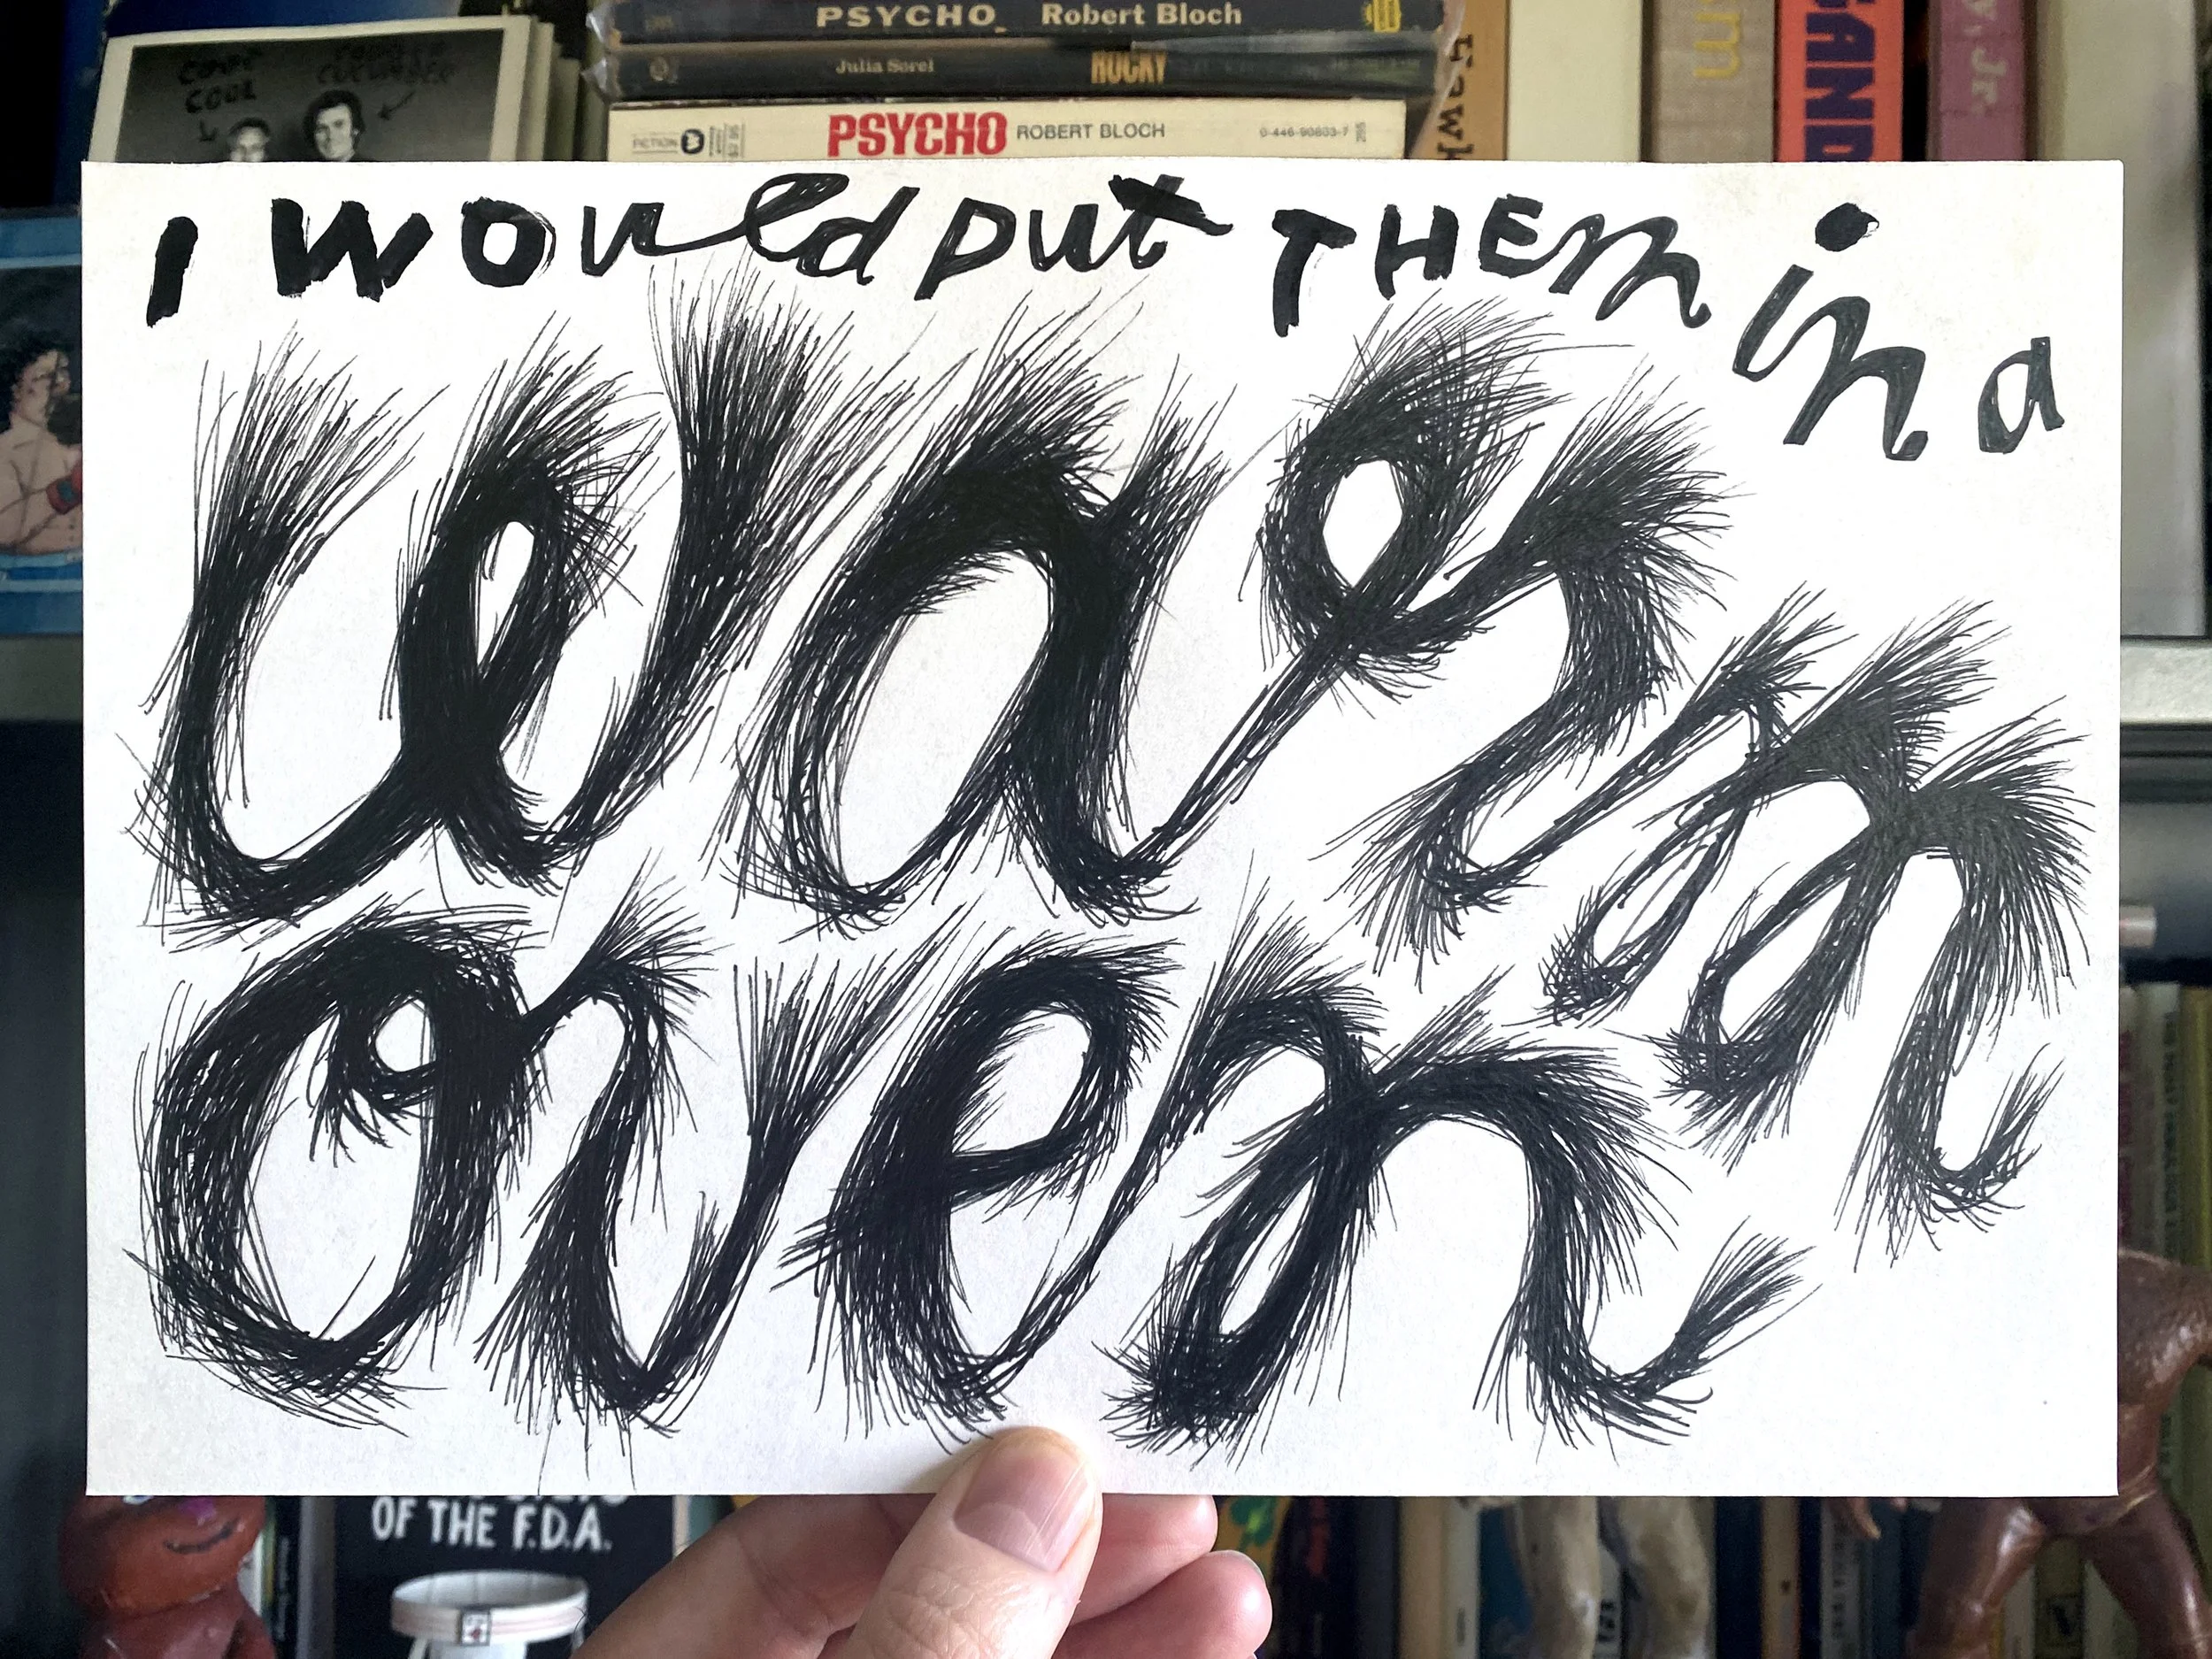 COOL
PSYCHO Robert Bloch
Julia Sorel ROCKY
FICTION PSYCHO ROBERT BLOCH 0-446-90803-7
Hawk
m
SAND
y, Jr.
I WOuld put THEm in a
warm
oven
OF THE F.D.A.